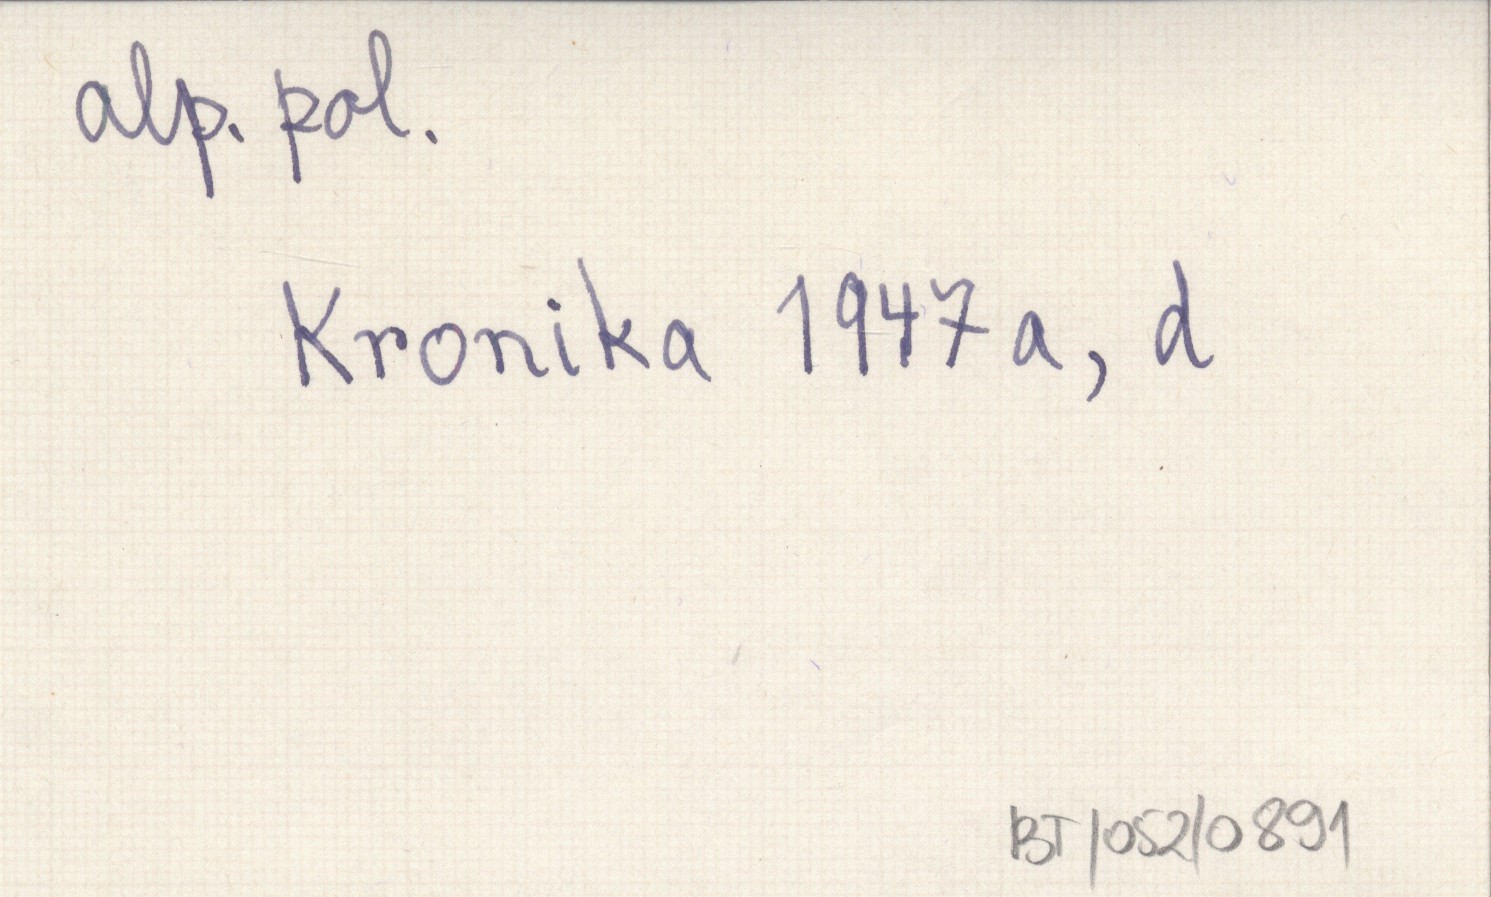 alp. pol.
Kronika 1947a, d
BT/052/0891